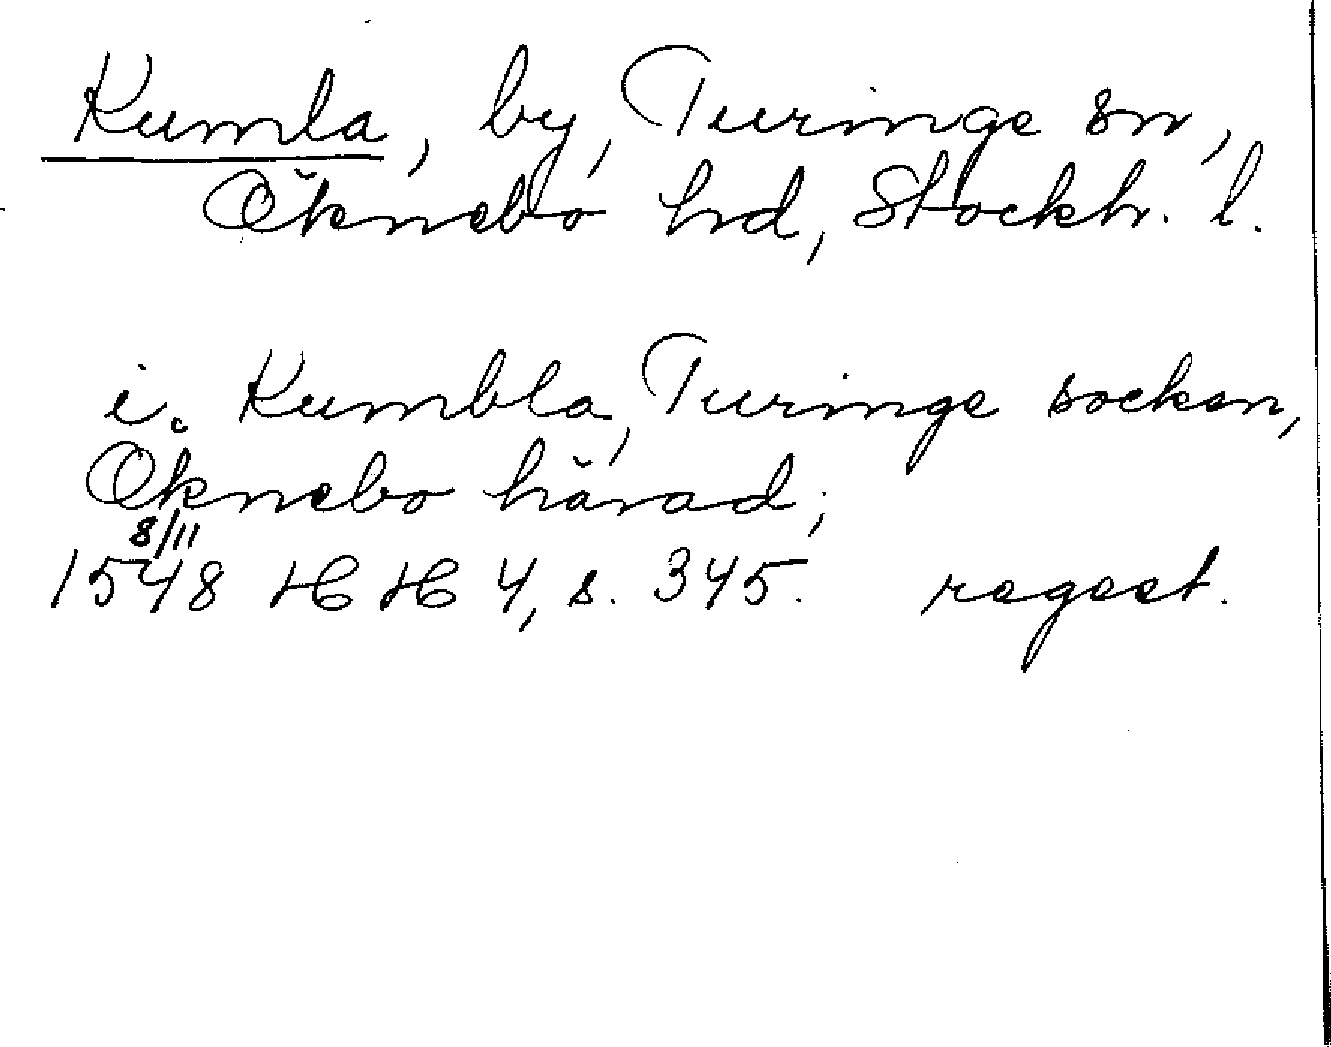 Kumla, by, Turinge sn,
Öknebo hrd, Stockh. l.
i. Kumbla, Turinge socken,
Öknebo härad;
8/11
1548 HH 4, s. 345. regest.